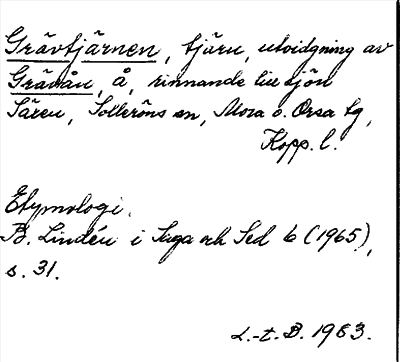 Grävtjärnen, tjärn, utvidgning av
Grävån, å, rinnande till sjön
Säxen, Solleröns sn, Mora o. Orsa tg,
Kopp. l.
Etymologi.
B. Lindén i Saga och Sed 6 (1965),
s. 31.
L.-t. B. 1983.